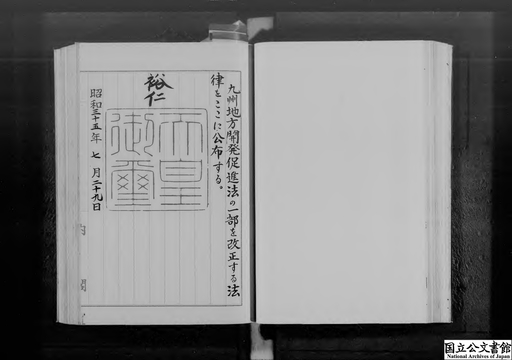 九州地方開発促進法の一部を改正する法
律をここに公布する。
裕仁
天皇御璽
昭和三十五年七月二十九日
内閣
国立公文書館
National Archives of Japan